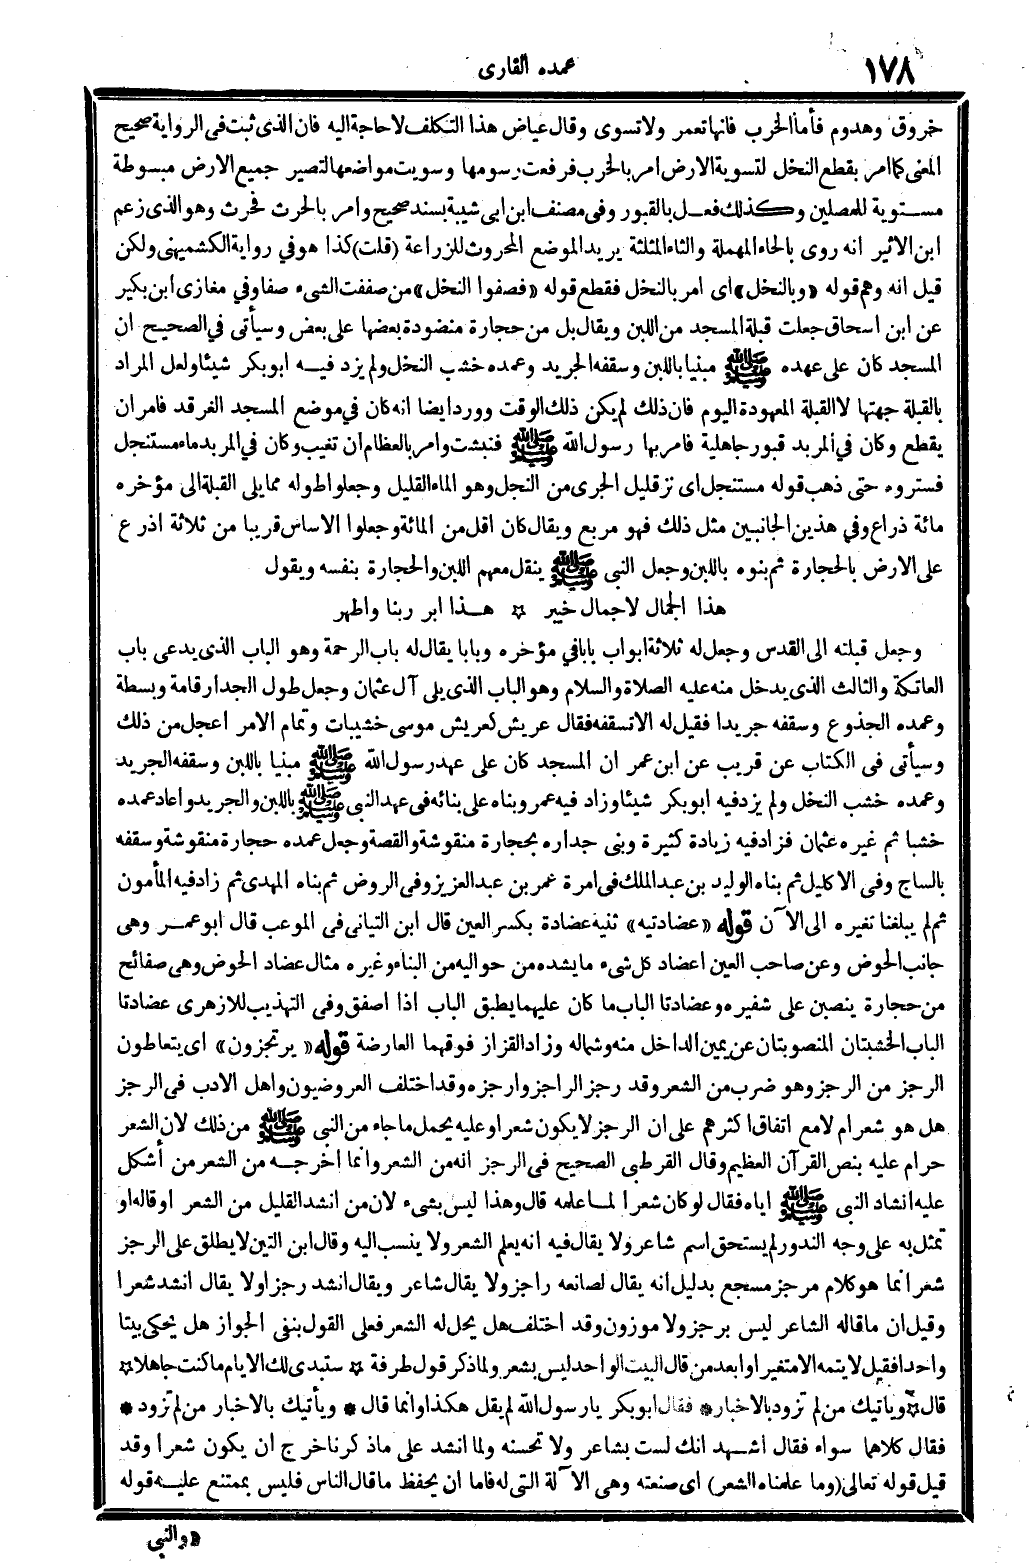 ١٧٨
عمده القارى
خروق وهدوم فأما الخرب فانها تعمر ولا تسوى وقال عياض هذا التكلف لا حاجة اليه فان الذى ثبت فى الرواية صحيح
المعنى كما امر بقطع النخل لتسوية الارض امر بالخرب فرفعت رسومها وسويت مواضعها لتصير جميع الارض مبسوطة
مستوية للمصلين وكذلك فعل بالقبور وفى مصنف ابن ابى شيبة بسند صحيح وامر بالحرث فحرث وهو الذى زعم
ابن الاثير انه روى بالحاء المهملة والثاء المثلثة يريد الموضع المحروث للزراعة (قلت) كذا هو في رواية الكشميهنى ولكن
قيل انه وهم قوله «وبالنخل» اى امر بالنخل فقطع قوله «فصفوا النخل» من صففت الشىء صفا وفي مغازى ابن بكير
عن ابن اسحاق جعلت قبلة المسجد من اللبن ويقال بل من حجارة منضودة بعضها على بعض وسيأتى في الصحيح ان
المسجد كان على عهده ﷺ مبنيا باللبن وسقفه الجريد وعمده خشب النخل ولم يزد فيه ابو بكر شيئا ولعل المراد
بالقبلة جهتها لا القبلة المعهودة اليوم فان ذلك لم يكن ذلك الوقت وورد ايضا انه كان في موضع المسجد الغرقد فامر ان
يقطع وكان في المربد قبور جاهلية فامر بها رسول الله ﷺ فنبشت وامر بالعظام أن تغيب وكان في المربد ماء مستنجل
فستروه حتى ذهب قوله مستنجل اى نز قليل الجرى من النجل وهو الماء القليل وجعلوا طوله مما يلى القبلة الى مؤخره
مائة ذراع وفي هذين الجانبين مثل ذلك فهو مربع ويقال كان اقل من المائة وجعلوا الاساس قريبا من ثلاثة اذرع
على الارض بالحجارة ثم بنوه باللبن وجعل النبى ﷺ ينقل معهم اللبن والحجارة بنفسه ويقول
هذا الجمال لا جمال خيبر ☆ هذا ابر ربنا واطهر
وجعل قبلته الى القدس وجعل له ثلاثة ابواب بابا في مؤخره وبابا يقال له باب الرحمة وهو الباب الذى يدعى باب
العاتكة والثالث الذى يدخل منه عليه الصلاة والسلام وهو الباب الذى يلى آل عثمان وجعل طول الجدار قامة وبسطة
وعمده الجذوع وسقفه جريدا فقيل له الا تسقفه فقال عريش كعريش موسى خشيبات وتمام الامر اعجل من ذلك
وسيأتى فى الكتاب عن قريب عن ابن عمر ان المسجد كان على عهد رسول الله ﷺ مبنيا باللبن وسقفه الجريد
وعمده خشب النخل ولم يزد فيه ابو بكر شيئا وزاد فيه عمر وبناه على بنائه فى عهد النبى ﷺ باللبن والجريد واعاد عمده
خشبا ثم غيره عثمان فزاد فيه زيادة كثيرة وبنى جداره بحجارة منقوشة والقصة وجعل عمده حجارة منقوشة وسقفه
بالساج وفى الاكليل ثم بناه الوليد بن عبد الملك فى امرة عمر بن عبد العزيز وفى الروض ثم بناه المهدى ثم زاد فيه المأمون
ثم لم يبلغنا تغيره الى الآن قوله «عضادتيه» ثنية عضادة بكسر العين قال ابن التيانى فى الموعب قال ابو عمر وهى
جانب الحوض وعن صاحب العين اعضاد كل شىء ما يشده من حواليه من البناء وغيره مثال عضاد الحوض وهى صفائح
من حجارة ينصبن على شفيره وعضادتا الباب ما كان عليهما يطبق الباب اذا اصفق وفى التهذيب للازهرى عضادتا
الباب الخشبتان المنصوبتان عن يمين الداخل منه وشماله وزاد القزاز فوقهما العارضة قوله «يرتجزون» اى يتعاطون
الرجز من الرجز وهو ضرب من الشعر وقد رجز الراجز وارتجزه وقد اختلف العروضيون واهل الادب فى الرجز
هل هو شعر ام لا مع اتفاق اكثرهم على ان الرجز لا يكون شعرا وعليه يحمل ما جاء من النبى ﷺ من ذلك لان الشعر
حرام عليه بنص القرآن العظيم وقال القرطبى الصحيح فى الرجز انه من الشعر وانما اخرجه من الشعر من أشكل
عليه انشاد النبى ﷺ اياه فقال لو كان شعرا لما علمه قال وهذا ليس بشىء لان من انشد القليل من الشعر او قاله او
تمثل به على وجه الندور لم يستحق اسم شاعر ولا يقال فيه انه يعلم الشعر ولا ينسب اليه وقال ابن التين لا يطلق على الرجز
شعر انما هو كلام مرجز مسجع بدليل انه يقال لصانعه راجز ولا يقال شاعر ويقال انشد رجزا ولا يقال انشد شعرا
وقيل ان ما قاله الشاعر ليس برجز ولا موزون وقد اختلف هل يحل له الشعر فعلى القول بنفى الجواز هل يحكى بيتا
واحدا فقيل لا يتمه الا متغيرا وابعد من قال البيت الواحد ليس بشعر ولما ذكر قول طرفة ☆ ستبدى لك الايام ما كنت جاهلا ☆
قال ☆ ويأتيك من لم تزود بالاخبار * فقال ابو بكر يا رسول الله لم يقل هكذا وانما قال * ويأتيك بالاخبار من لم تزود *
فقال كلاهما سواء فقال أشهد انك لست بشاعر ولا تحسنه ولما انشد على ما ذكرنا خرج ان يكون شعرا وقد
قيل قوله تعالى (وما علمناه الشعر) اى صنعته وهى الآلة التى له فاما ان يحفظ ما قال الناس فليس بممتنع عليه قوله
«والنبي